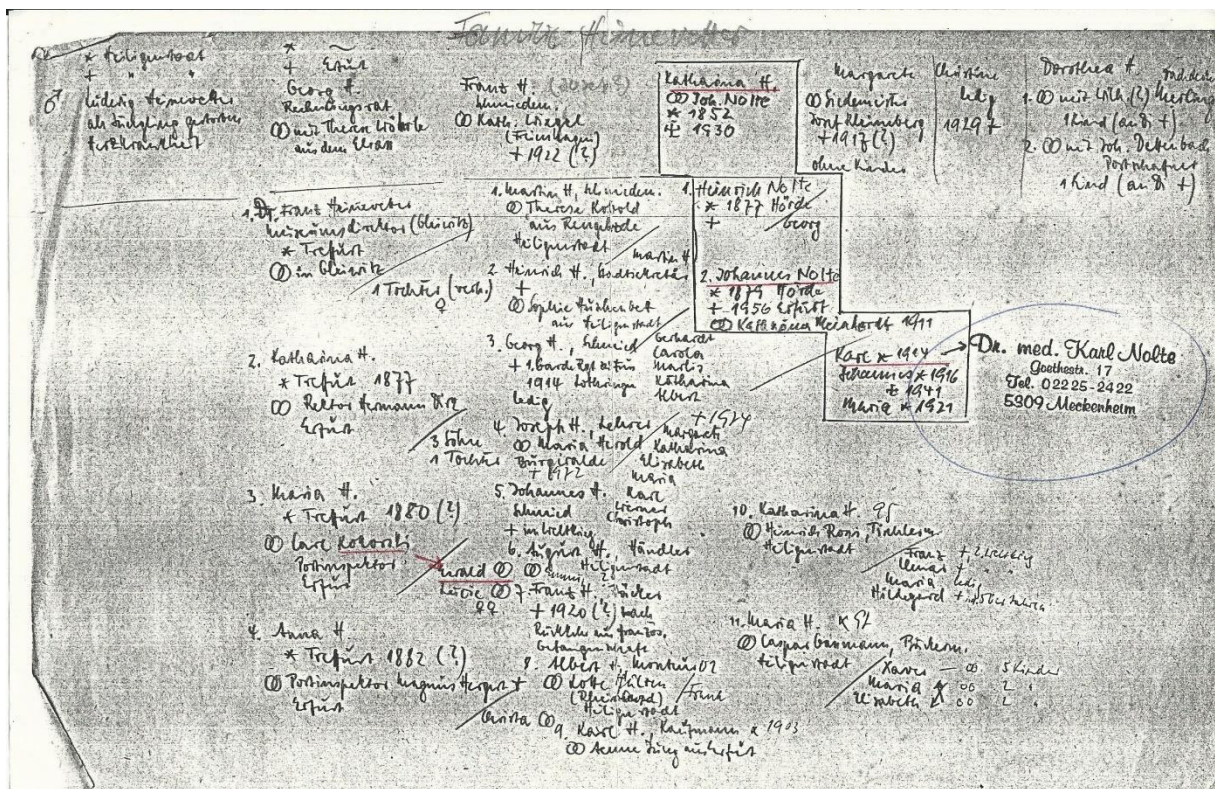 Familie Heinevetter
* Heiligenstadt
+ " "
♂
Ludwig Heinevetter
als Jüngling gestorben
Herzkrankheit
*
+ Erfurt
Georg H.
Rechnungsrat
⚭ mit Therese
aus dem Elsass
Franz H. (Joseph)
Schmiedem.
⚭ Kath. Liegel
+ 1922 (?)
Katharina H.
⚭ Joh. Nolte
* 1852
+ 1930
Margarete
⚭ Siedemeister
Dorf
+ 1917 (?)
ohne Kinder
Christine
ledig
1929 +
Dorothea H.
1. ⚭ mit Wilh. (?)
1 Kind (auch +)
2. ⚭ mit Joh. Dettenbach
Postschaffner
1 Kind (auch +)
1. Dr. Franz Heinevetter
Museumsdirektor (Gleiwitz)
* Treffurt
⚭ in Gleiwitz
1 Tochter (verh.)
♀
2. Katharina H.
* Treffurt 1877
⚭ Rektor Hermann
Erfurt
3 Söhne
1 Tochter
3. Maria H.
* Treffurt 1880 (?)
⚭ Carl Kokorski
Postinspektor
Erfurt
Ewald ⚭
Luzie ⚭
♀♀
4. Anna H.
* Treffurt 1882 (?)
⚭ Postinspektor Magnus Hergert +
Erfurt
Christa ⚭
1. Martin H., Schmiedem.
⚭ Therese Kobold
aus Rengelrode
Heiligenstadt
Martin H.
2. Heinrich H., Stadtsekretär
+
⚭ Sophie
aus Heiligenstadt
Gerhardt
Carola
Marlis
Katharina
Albert
3. Georg H., Schmied
+ 1.
1914 Lothringen
ledig
4. Joseph H., Lehrer
⚭ Maria Herold
Bürgiralde
+ 1972
+ 1924
Margarete
Katharina
Elisabeth
Maria
Karl
Werner
Christoph
5. Johannes H.
Schmied
+ im Weltkrieg
6. August H., Händler
⚭ Heiligenstadt
7. Franz H., Bäcker
+ 1920 (?) nach
Rückkehr aus französ.
Gefangenschaft
8. Albert H., Monteur
⚭ Lotte
(Rheinland)
Heiligenstadt
Frank
9. Karl H., Kaufmann * 1903
⚭ Aenne Jung aus Erfurt
1. Heinrich Nolte
* 1877 Hörde
+ Georg
2. Johannes Nolte
* 1879 Hörde
+ 1956 Erfurt
⚭ Katharina Meinhardt 1911
Karl * 1914 →
Johannes * 1916
+ 1941
Maria * 1921
Dr. med. Karl Nolte
Goethestr. 17
Tel. 02225-2422
5309 Meckenheim
10. Katharina H. 95
⚭ Heinrich Rosi, Tischlerm.
Heiligenstadt
Franz + 2. Weltkrieg
+ " "
Maria led.
Hildegard +
11. Maria H. * 92
⚭ Caspar Gassmann, Bäckerm.
Heiligenstadt
Xaver — ⚭ 5 Kinder
Maria ⚭ 2 "
Elisabeth ⚭ 2 "